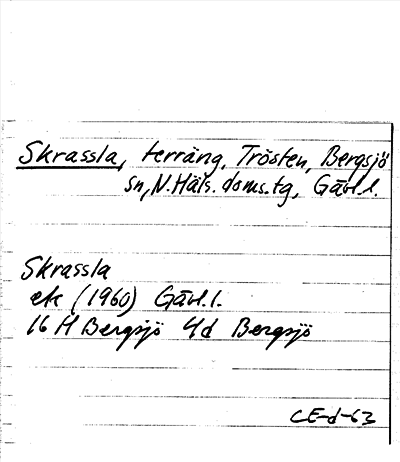 Skrassla, terräng, Trösten, Bergsjö
sn, N.Häls. doms.tg, Gävl.l.
Skrassla
ek (1960) Gävl.l.
16 H Bergsjö 4d Bergsjö
CE-d-63